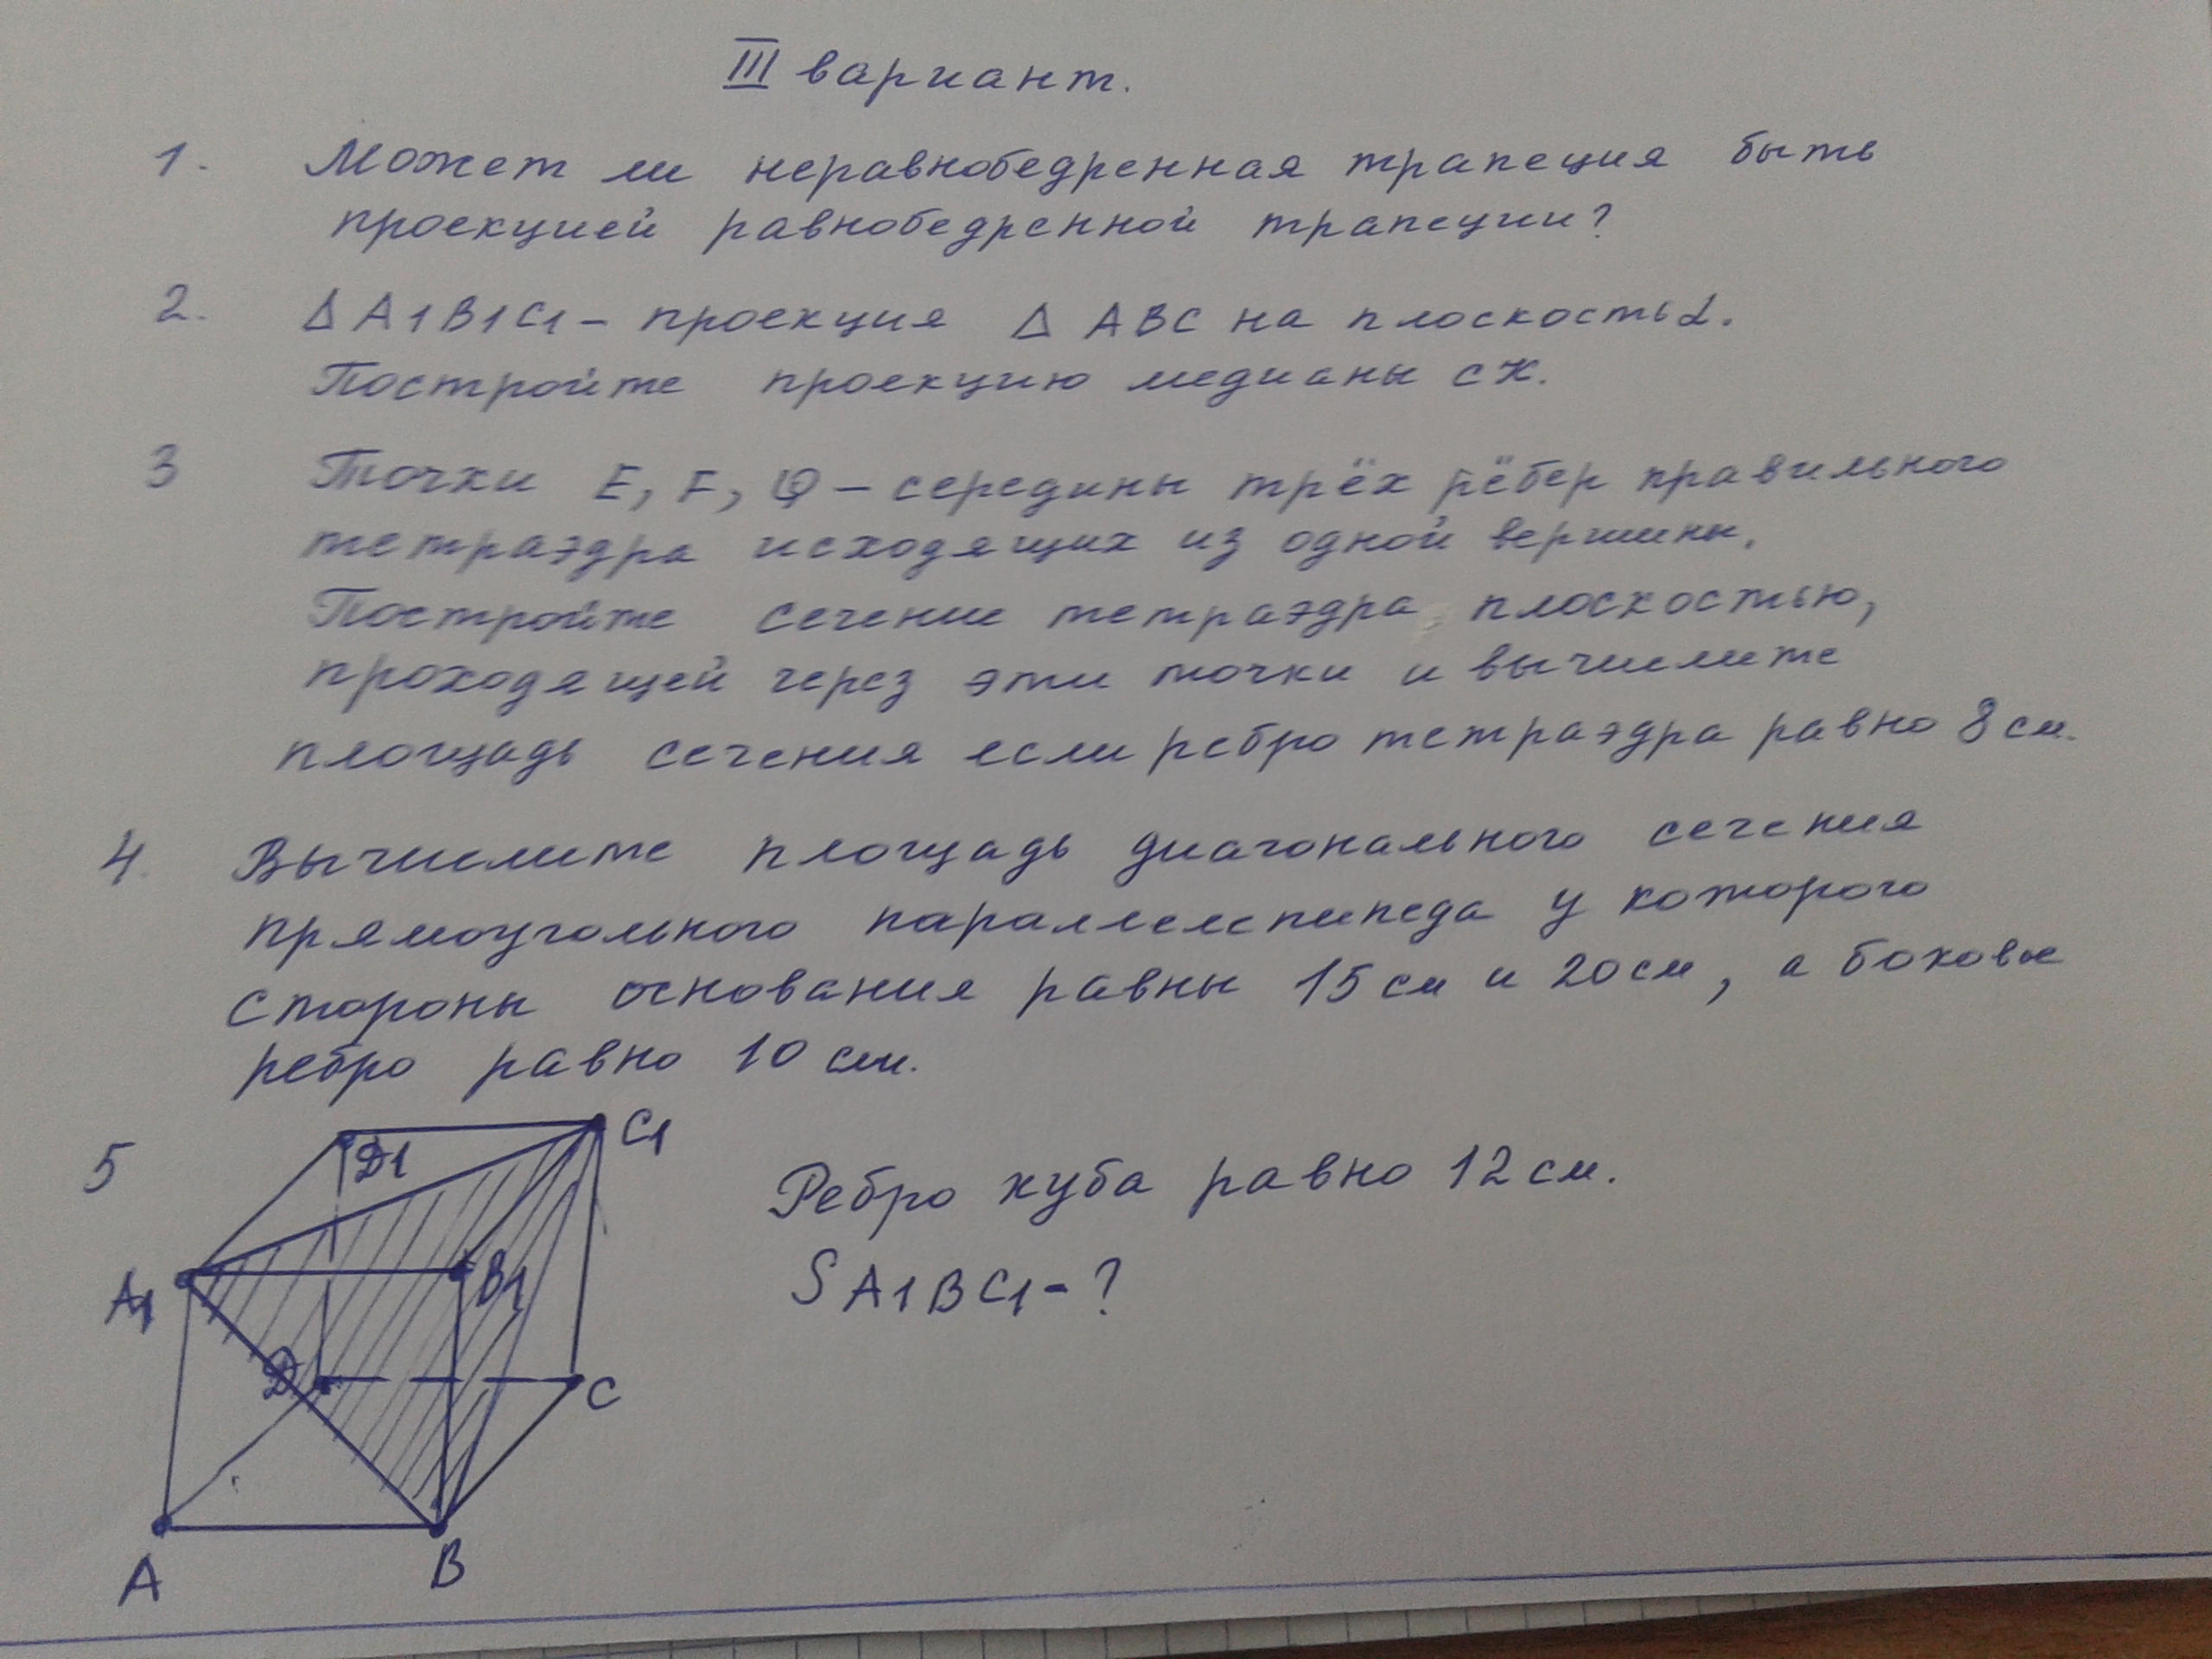 III вариант.
1. Может ли неравнобедренная трапеция быть
проекцией равнобедренной трапеции?
2. Δ A1B1C1 – проекция Δ ABC на плоскость α.
Постройте проекцию медианы СК.
3 Точки E, F, Q – середины трёх рёбер правильного
тетраэдра исходящих из одной вершины.
Постройте сечение тетраэдра плоскостью,
проходящей через эти точки и вычислите
площадь сечения если ребро тетраэдра равно 8 см.
4. Вычислите площадь диагонального сечения
прямоугольного параллелепипеда у которого
стороны основания равны 15 см и 20 см, а боковое
ребро равно 10 см.
5
C1
D1
Ребро куба равно 12 см.
A1
B1
S A1BC1 - ?
D
C
A
B